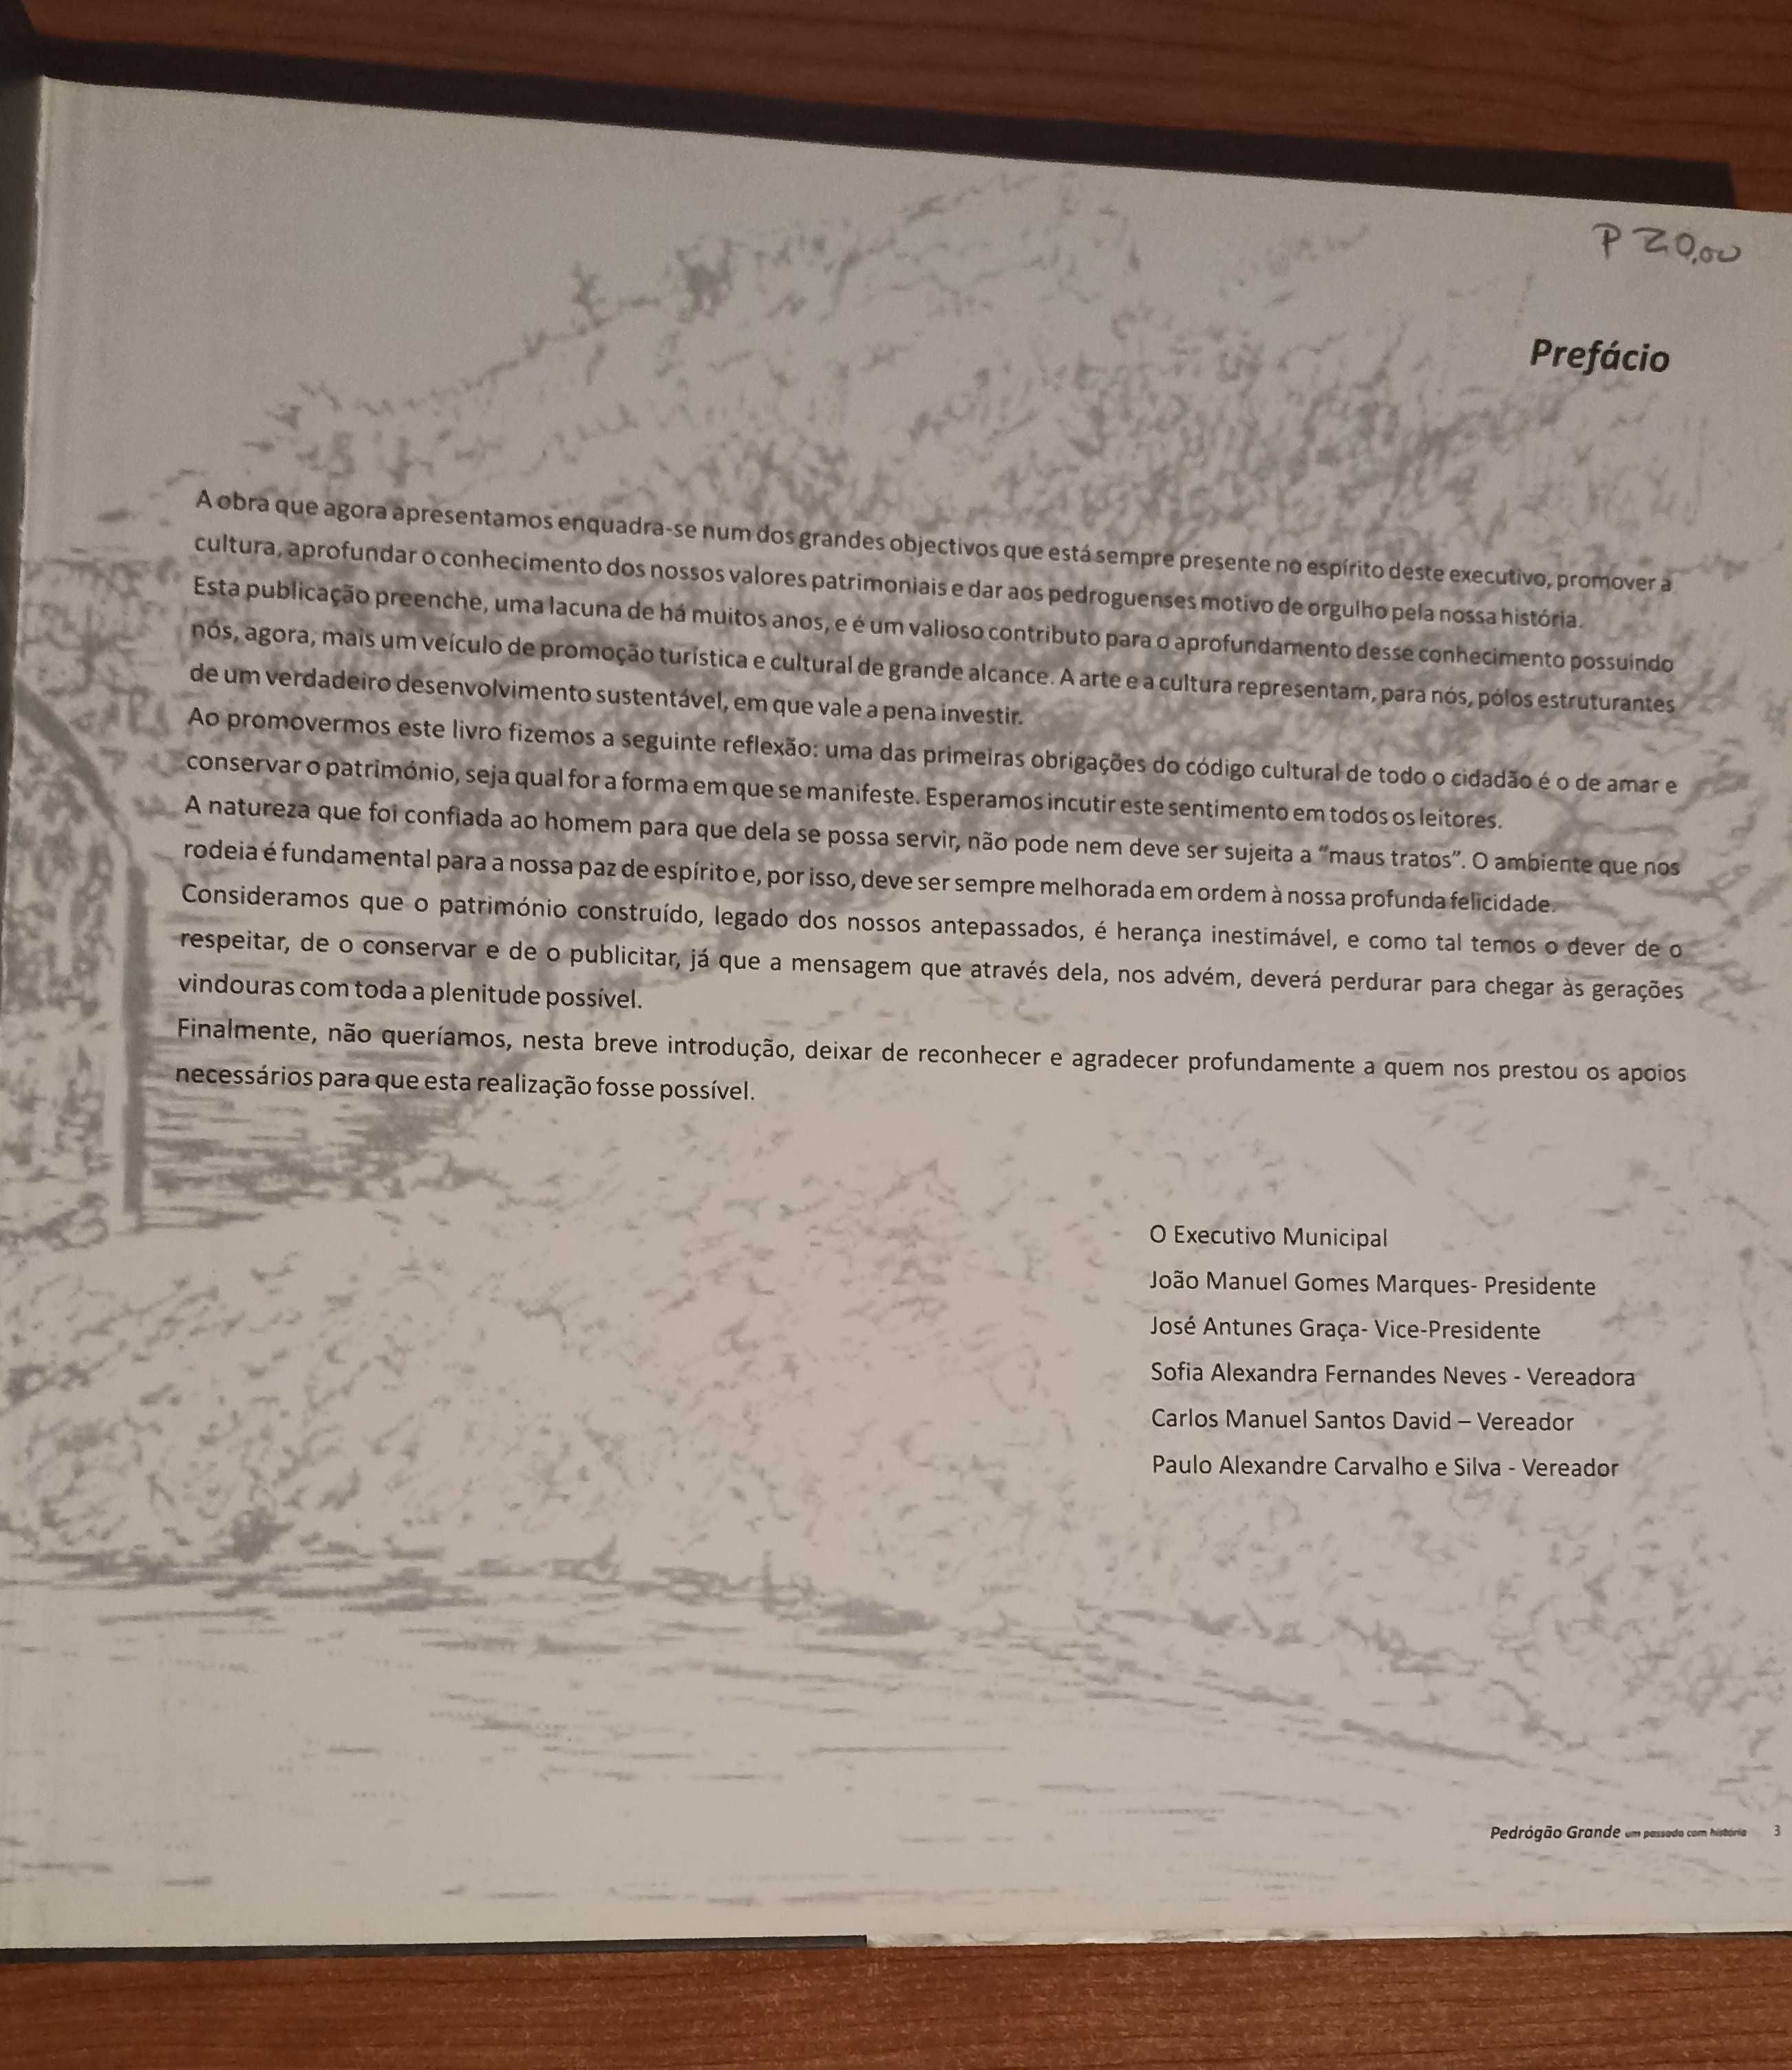 P 20,00
Prefácio
A obra que agora apresentamos enquadra-se num dos grandes objectivos que está sempre presente no espírito deste executivo, promover a
cultura, aprofundar o conhecimento dos nossos valores patrimoniais e dar aos pedroguenses motivo de orgulho pela nossa história.
Esta publicação preenche, uma lacuna de há muitos anos, e é um valioso contributo para o aprofundamento desse conhecimento possuindo
nós, agora, mais um veículo de promoção turística e cultural de grande alcance. A arte e a cultura representam, para nós, pólos estruturantes
de um verdadeiro desenvolvimento sustentável, em que vale a pena investir.
Ao promovermos este livro fizemos a seguinte reflexão: uma das primeiras obrigações do código cultural de todo o cidadão é o de amar e
conservar o património, seja qual for a forma em que se manifeste. Esperamos incutir este sentimento em todos os leitores.
A natureza que foi confiada ao homem para que dela se possa servir, não pode nem deve ser sujeita a “maus tratos”. O ambiente que nos
rodeia é fundamental para a nossa paz de espírito e, por isso, deve ser sempre melhorada em ordem à nossa profunda felicidade.
Consideramos que o património construído, legado dos nossos antepassados, é herança inestimável, e como tal temos o dever de o
respeitar, de o conservar e de o publicitar, já que a mensagem que através dela, nos advém, deverá perdurar para chegar às gerações
vindouras com toda a plenitude possível.
Finalmente, não queríamos, nesta breve introdução, deixar de reconhecer e agradecer profundamente a quem nos prestou os apoios
necessários para que esta realização fosse possível.
O Executivo Municipal
João Manuel Gomes Marques- Presidente
José Antunes Graça- Vice-Presidente
Sofia Alexandra Fernandes Neves - Vereadora
Carlos Manuel Santos David – Vereador
Paulo Alexandre Carvalho e Silva - Vereador
Pedrógão Grande um passado com história 3